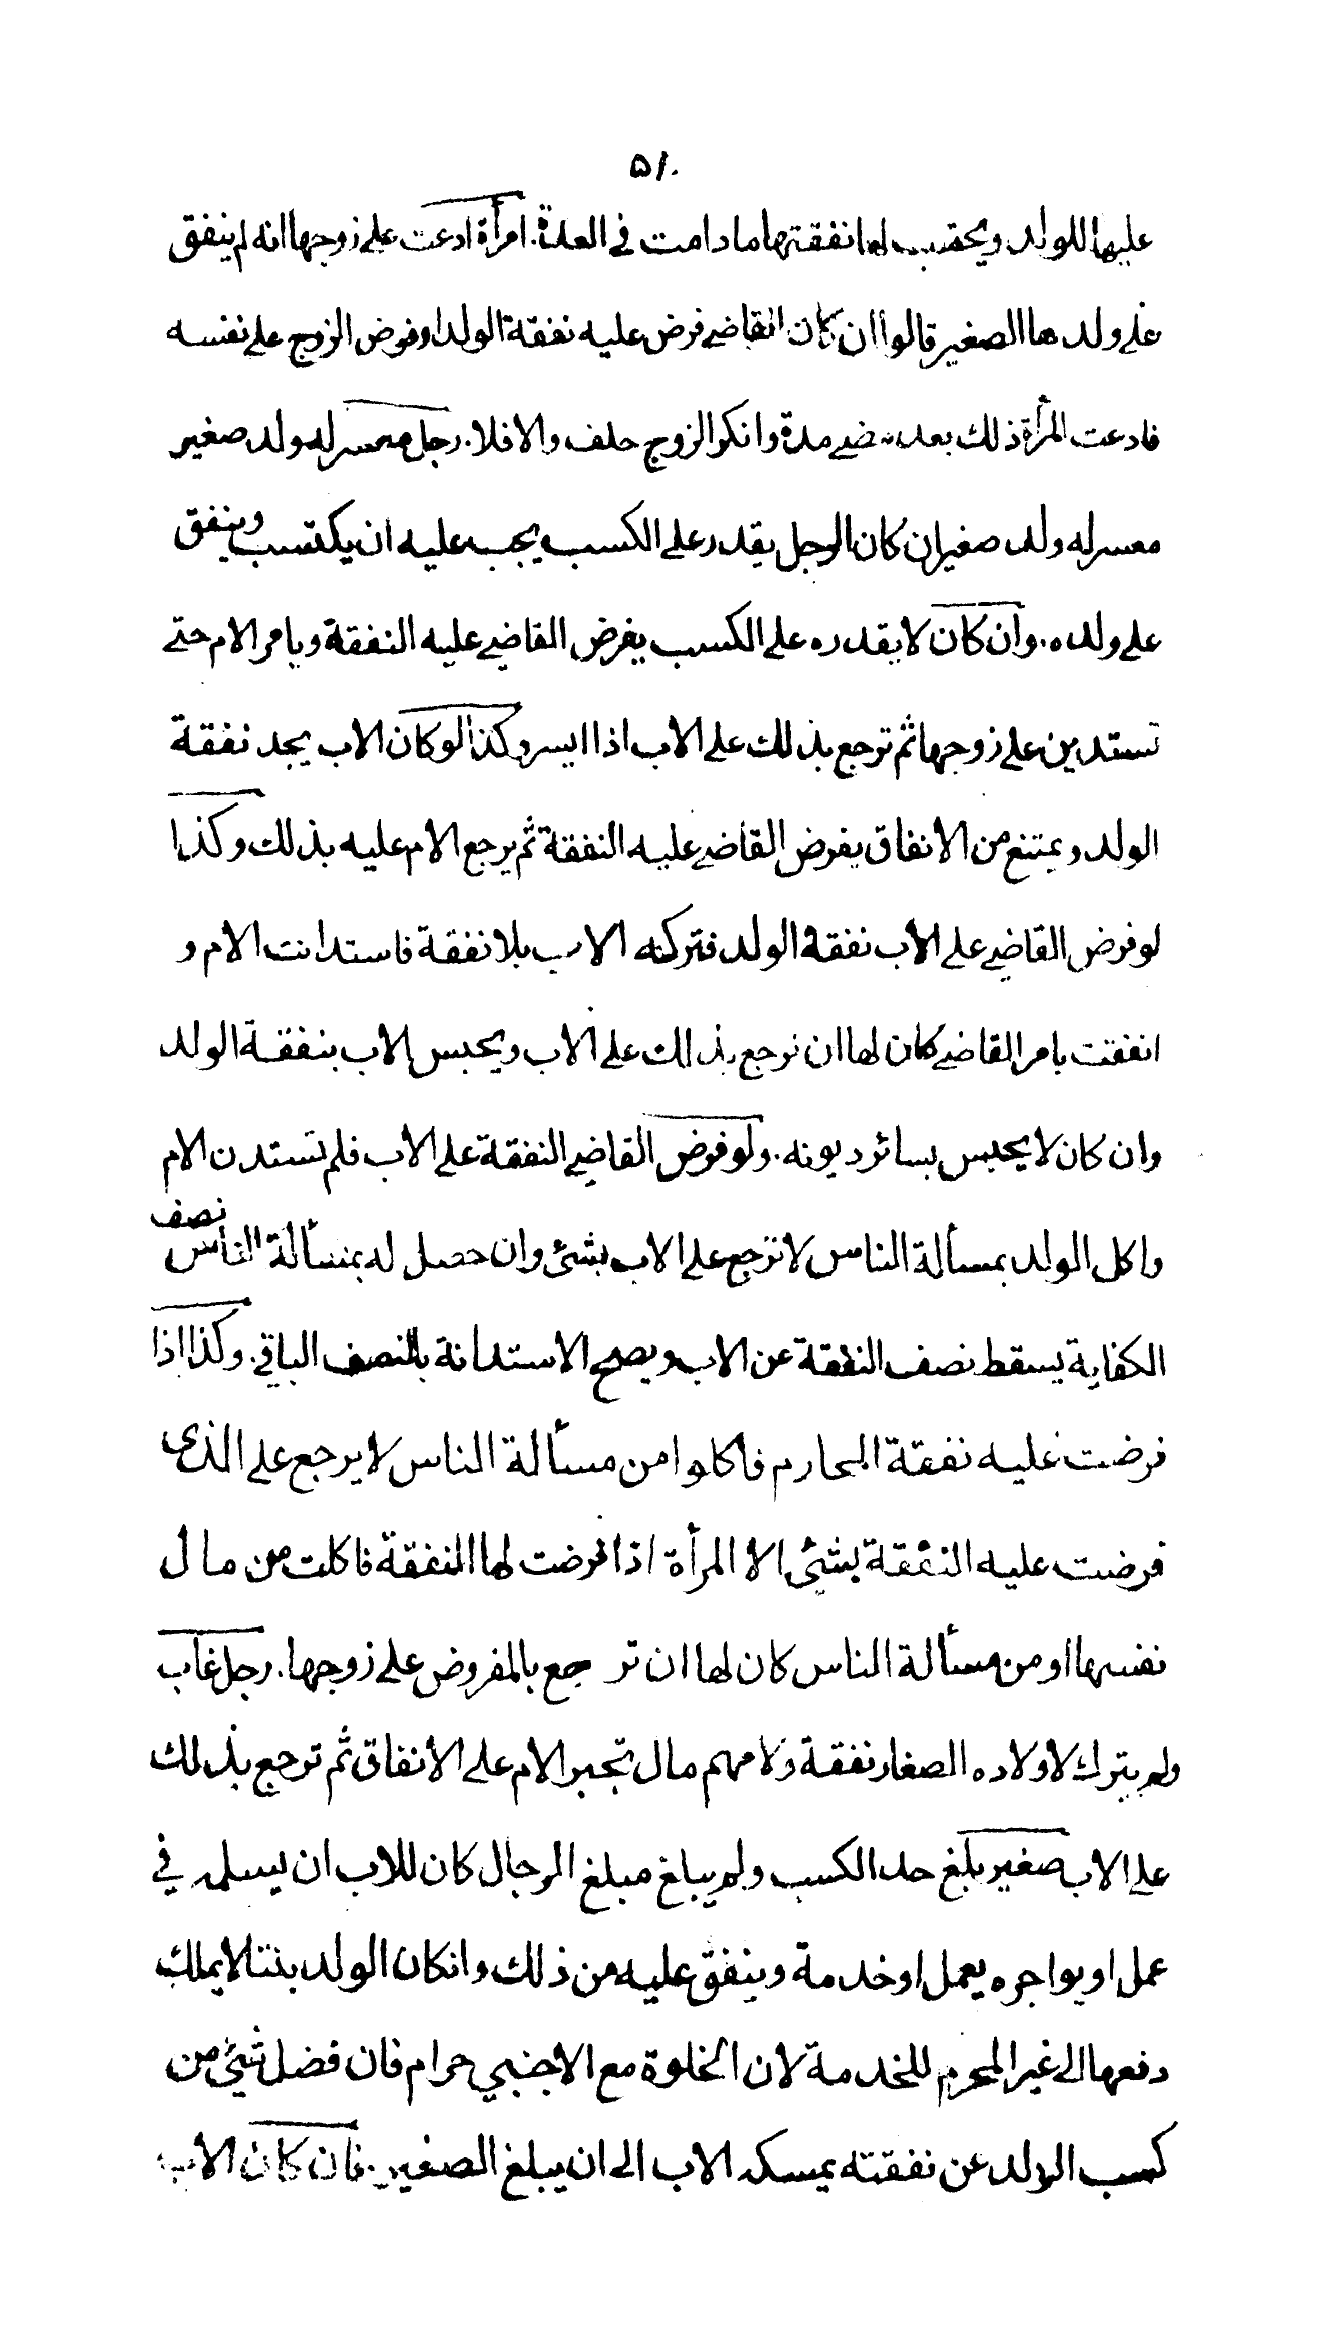 ٥١٠
عليها للولد ويحتسب لها نفقتها ما دامت في العدة. امرأة ادعت على زوجها انه لم ينفق
على ولدها الصغير قالوا ان كان القاضي فرض عليه نفقة الولد او فرض الزوج على نفسه
فادعت المرأة ذلك بعد مضي مدة وانكر الزوج حلف والا فلا. رجل معسر له ولد صغير
معسر له ولد صغير ان كان الرجل يقدر على الكسب يجب عليه ان يكتسب وينفق
على ولده. وان كان لا يقدره على الكسب يفرض القاضي عليه النفقة ويامر الام حتى
تستدين على زوجها ثم ترجع بذلك على الاب اذا ايسر وكذا لو كان الاب يجد نفقة
الولد ويمتنع من الانفاق يفرض القاضي عليه النفقة ثم يرجع الام عليه بذلك وكذا
لو فرض القاضي على الاب نفقة الولد فتركه الاب بلا نفقة فاستدانت الام و
انفقت بامر القاضي كان لها ان ترجع بذلك على الاب ويحبس الاب بنفقة الولد
وان كان لا يحبس بسائر ديونه. ولو فرض القاضي النفقة على الاب فلم تستدن الام
واكل الولد بمسألة الناس لا ترجع على الاب بشئ وان حصل له بمسألة الناس نصف
الكفاية يسقط نصف النفقة عن الاب ويصح الاستدانة بالنصف الباقي. وكذا اذا
فرضت عليه نفقة المحارم فاكلوا من مسألة الناس لا يرجع على الذي
فرضت عليه النفقة بشئ الا المرأة اذا فرضت لها النفقة فاكلت من مال
نفسها او من مسألة الناس كان لها ان ترجع بالمفروض على زوجها. رجل غاب
ولم يترك لاولاده الصغار نفقة ولامهم مال تجبر الام على الانفاق ثم ترجع بذلك
على الاب صغير بلغ حد الكسب ولم يبلغ مبلغ الرجال كان للاب ان يسلمه في
عمل او يواجره بعمل او خدمة وينفق عليه من ذلك وان كان الولد بنتا لا يملك
دفعها الى غير المحرم للخدمة لان الخلوة مع الاجنبي حرام فان فضل شئ من
كسب الولد عن نفقته يمسكه الاب الى ان يبلغ الصغير. فان كان الاب